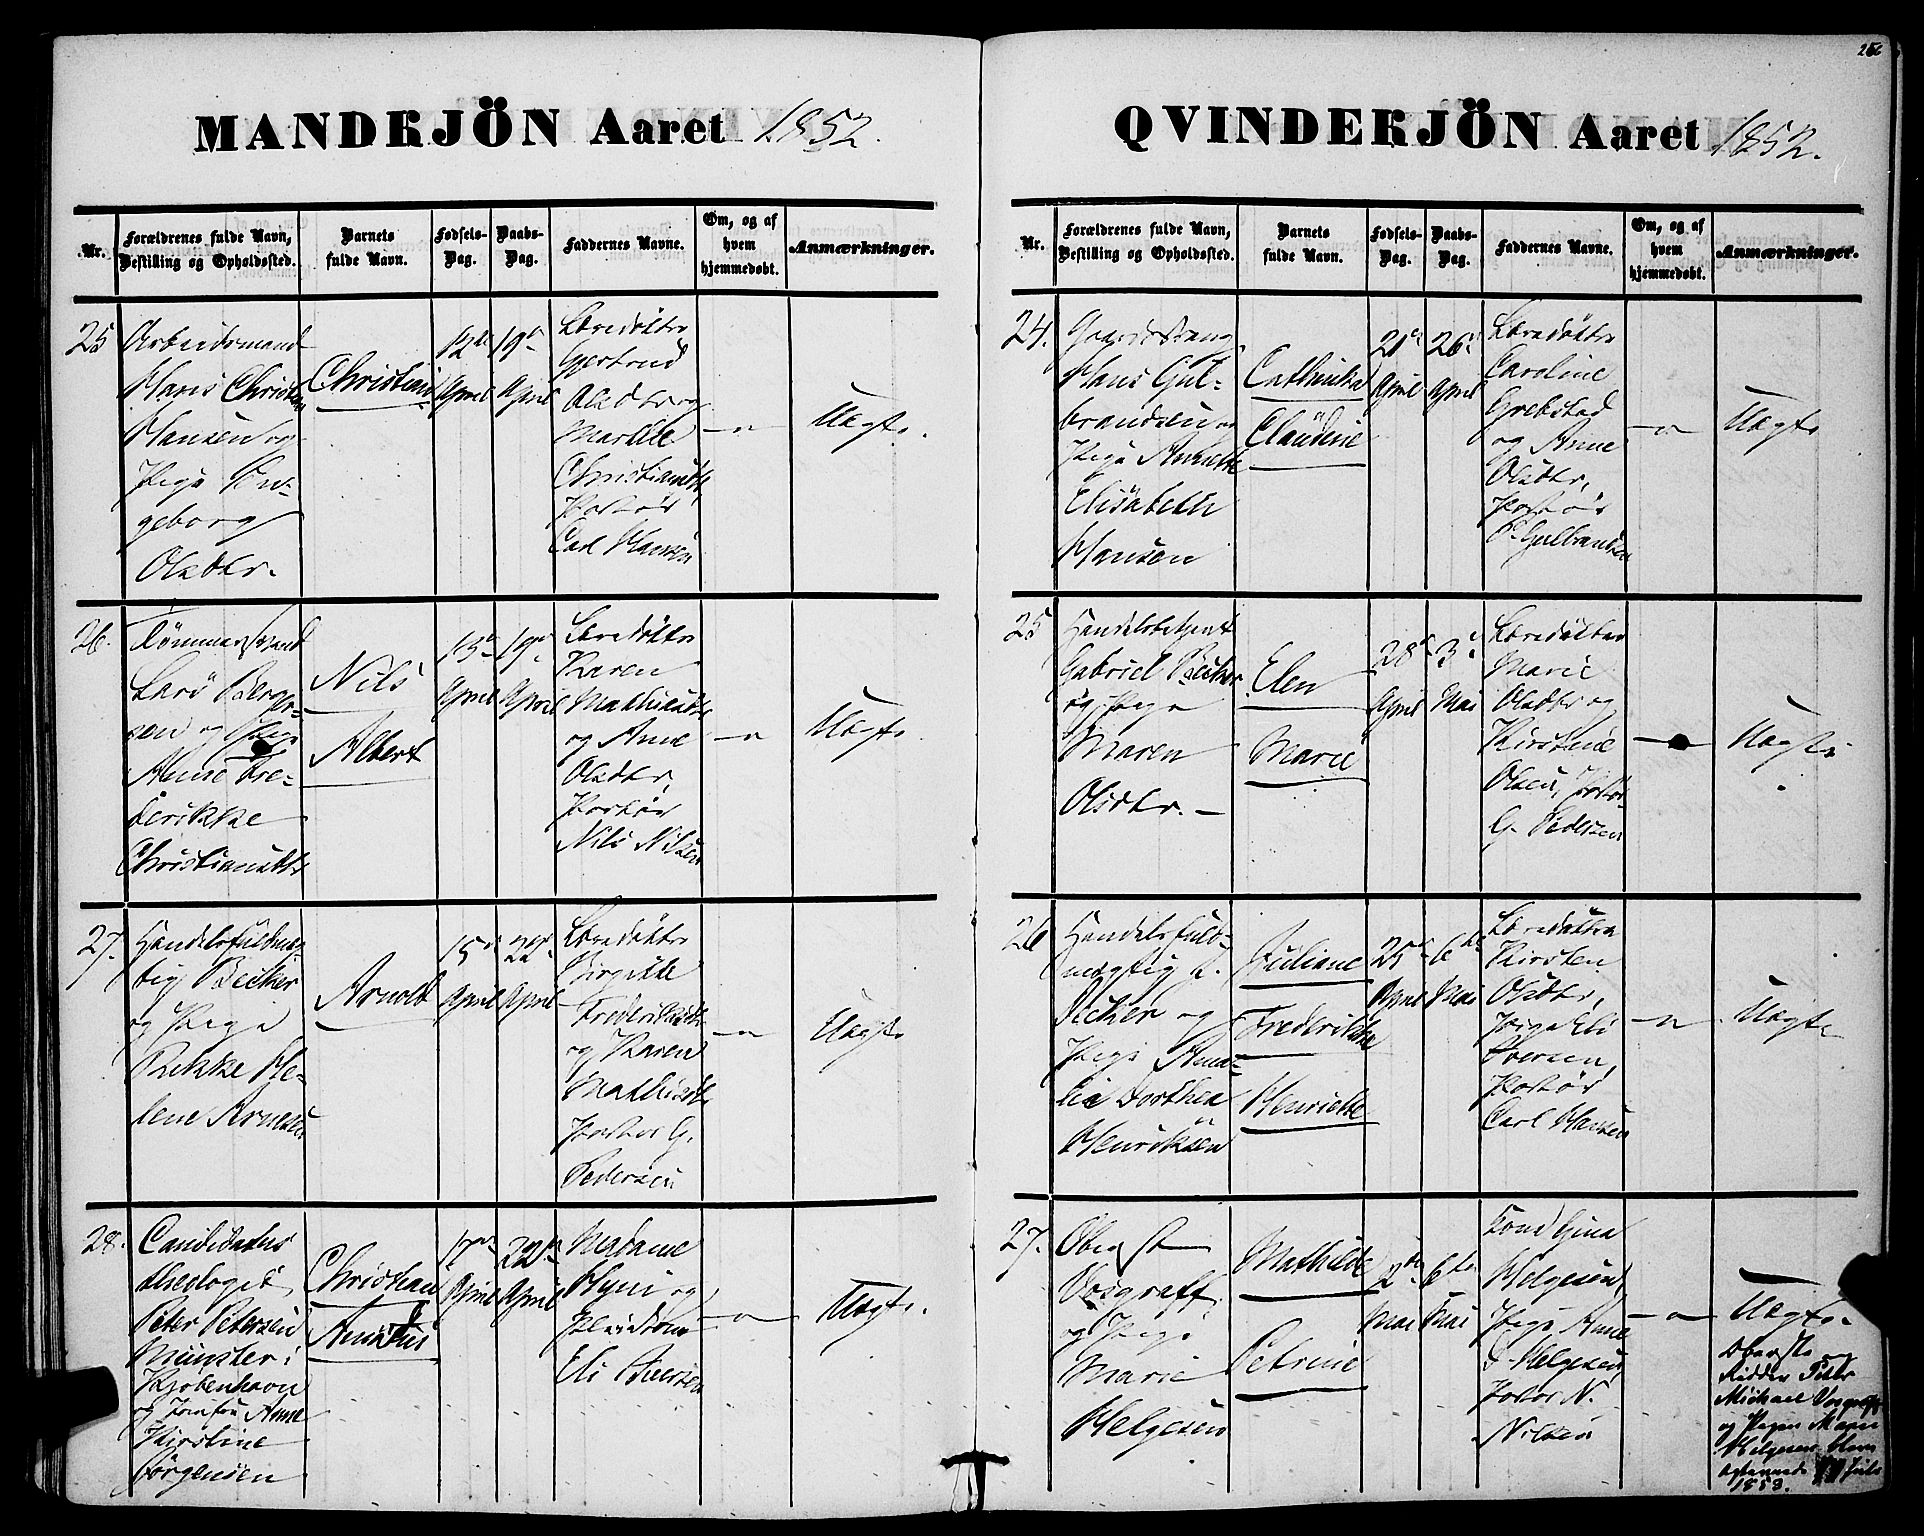 256
MANDKJÖN Aaret 1852.
Nr.
Forældrenes fulde Navn,
Bestilling og Opholdssted.
Barnets
fulde Navn.
Fødsels-
Dag.
Daabs-
Dag.
Faddernes Navne.
Om, og af
hvem
hjemmedøbt.
Anmærkninger.
25
Arbeidsmand
Hans Christian
Hansen og
Pige In-
geborg
Olsdtr.
Christian
12te
April
19de
April
Gjertrud
Olsdtr og
Marthe
Christiansdtr,
Portør
Carl Hansen
Uægte.
26.
Lars Berge-
sen og Pige
Anne Fre-
derikke
Christiansdtr
Nils
Albert
13de
April
19de
April
Karen
Mathisdtr
og Anne
Olsdtr,
Portør
Nils Nilsen
Uægte
27.
Handelsfuldmæg-
tig Becker
og Pige
Rikke He-
lene Arnesen
Arnold
15de
April
22de
April
Birgitte
Frederiksdtr
og Karen
Mathisdtr
Portør G.
Pedersen
Uægte
28.
Candidatus
theologiæ
Peter Petersen
Münster i
Kjøbenhavn
og Jomfru Anne
Kirstine
Jørgensen
Christian
17de
April
22de
April
Madame
og
Eli Iversen
Uægte.
QVINDEKJÖN Aaret 1852.
Nr.
Forældrenes fulde Navn,
Bestilling og Opholdssted.
Barnets
fulde Navn.
Fødsels-
Dag.
Daabs-
Dag.
Faddernes Navne.
Om, og af
hvem
hjemmedøbt.
Anmærkninger.
24.
Hans Gul-
brandsen og
Pige Annette
Elisabeth
Hansen
Cathinka
Claudine
21de
April
26de
April
Caroline
Grebstad
og Anne
Olsdtr,
Portør
P. Gulbrandsen
Uægte
25
Handelsbetjent
Gabriel Becker
og Pige
Maren
Olsdtr. –
Elen
Marie
28de
April
3de
Mai
Marie
Olsdtr og
Kirstine
Olsen, Portør
G. Pedersen
Uægte
26
Handelsfuld-
mægtig J.
Becher og
Pige Ama-
lie Dorthea
Henriksen
Juliane
Frederikke
Henriette
25de
April
6te
Mai
Kirsten
Olsdtr,
Pige Eli
Iversen,
Portør
Carl Hansen
Uægte
27.
Oberst
Vosgraff
og Pige
Marie
Helgesen
Mathilde
Petrine
2den
Mai
6te
Mai
Helgesen,
Pige Anne
Helgesen,
Portør N.
Nilsen
Uægte.
Oberst og
Ridder Peter
Michael Vosgraff
og Pigen Marie
Helgesen
Juli
1853.